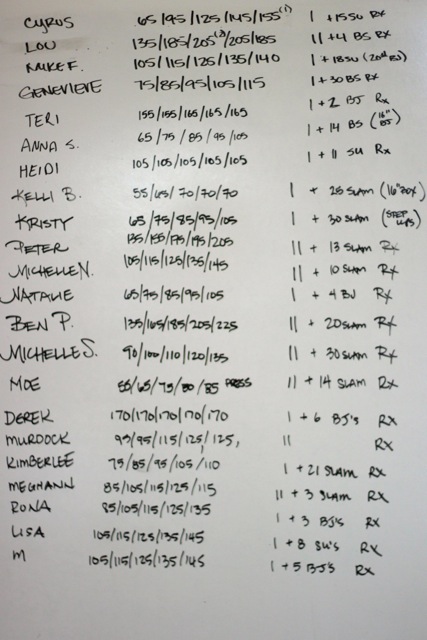 CYRUS 65/95/125/145/155(1) 1 + 15 SU Rx
LOU 135/185/205(2)/205/185 11 + 4 BS Rx
MIKE F. 105/115/125/135/140 1 + 18 SU (20# BJ)
GENEVIEVE 75/85/95/105/115 1 + 30 BS Rx
TERI 155/155/165/165/165 1 + 2 BJ Rx
ANNA S. 65/75/85/95/105 1 + 14 BS (16" BJ)
HEIDI 105/105/105/105/105 1 + 11 SU Rx
KELLI B. 55/65/70/70/70 1 + 25 SLAM (16" BOX)
KRISTY 65/75/85/95/105 1 + 30 SLAM (STEP UPS)
PETER 135/155/175/195/205 11 + 13 SLAM Rx
MICHELLE N. 105/115/125/135/145 11 + 10 SLAM Rx
NATALIE 65/75/85/95/105 1 + 4 BJ Rx
BEN P. 135/165/185/205/225 11 + 20 SLAM Rx
MICHELLE S. 90/100/110/120/135 11 + 30 SLAM Rx
MOE 55/65/75/80/85 PRESS 11 + 14 SLAM Rx
DEREK 170/170/170/170/170 1 + 6 BJ'S Rx
MURDOCK 95/95/115/125/125, 11 Rx
KIMBERLEE 75/85/95/105/110 1 + 21 SLAM Rx
MEGHANN 85/105/115/125/115 11 + 3 SLAM Rx
RONA 85/105/115/125/135 1 + 3 BJ'S Rx
LISA 105/115/125/135/145 1 + 8 SU'S Rx
M 105/115/125/135/145 1 + 5 BJ'S Rx